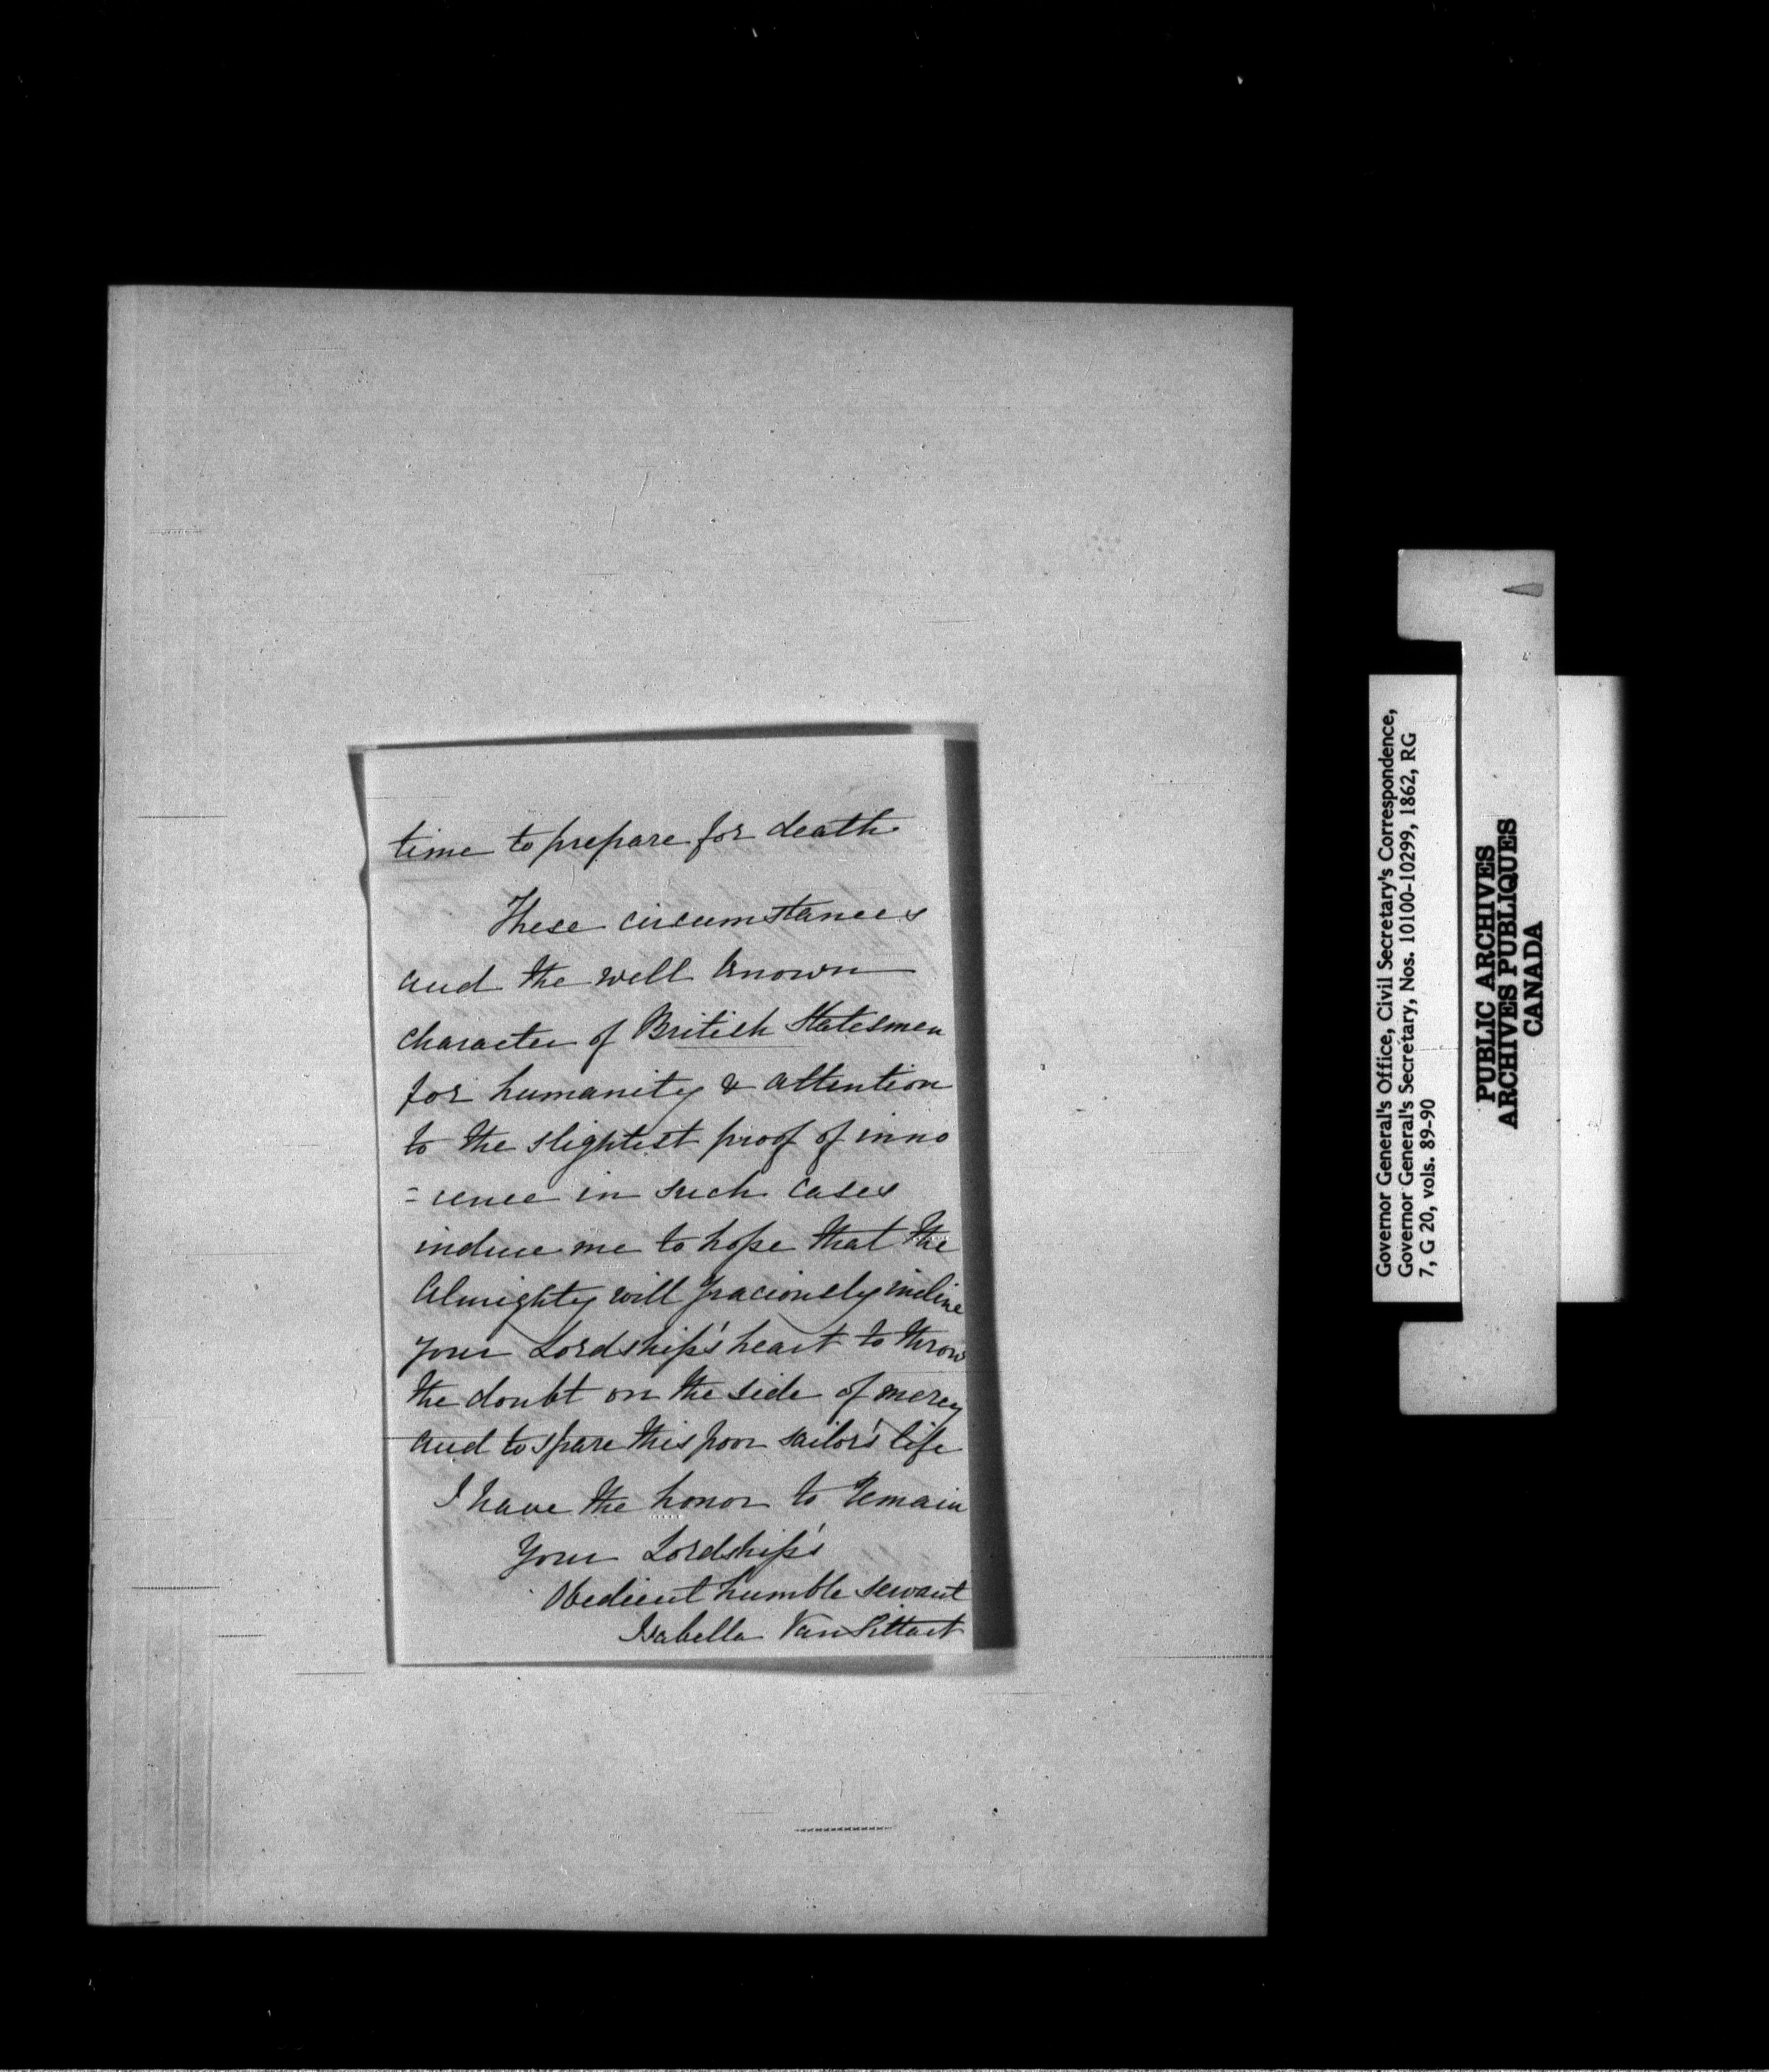 time to prepare for death.
These circumstances
and the well known
character of British Statesmen
for humanity & attention
to the slightest proof of inno
=cence in such cases
induce me to hope that the
Almighty will graciously incline
your Lordship's heart to throw
the doubt on the side of mercy
and to spare this poor sailor's life
I have the honor to remain
Your Lordship's
Obedient humble servant
Isabella VanSittart
Governor General's Office, Civil Secretary's Correspondence,
Governor General's Secretary, Nos. 10100-10299, 1862, RG
7, G 20, vols. 89-90
PUBLIC ARCHIVES
ARCHIVES PUBLIQUES
CANADA